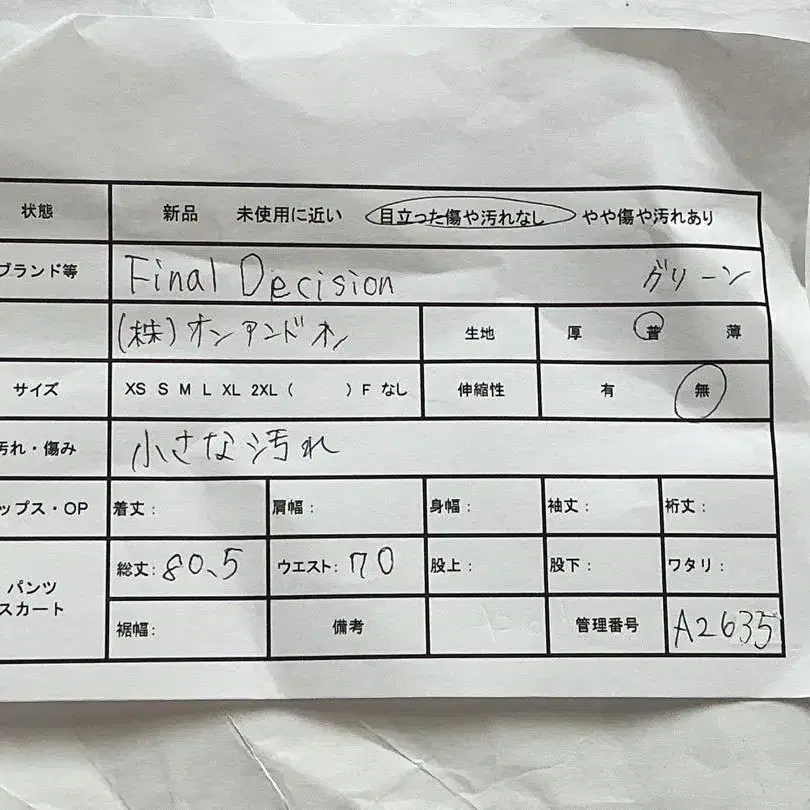 状態 新品 未使用に近い 目立った傷や汚れなし やや傷や汚れあり
ブランド等 Final Decision グリーン
(株)オンアンドオン 生地 厚 普 薄
サイズ XS S M L XL 2XL ( ) F なし 伸縮性 有 無
汚れ・傷み 小さな汚れ
ップス・OP 着丈: 肩幅: 身幅: 袖丈: 裄丈:
パンツ
スカート
総丈: 80.5 ウエスト: 70 股上: 股下: ワタリ:
裾幅: 備考 管理番号 A2635